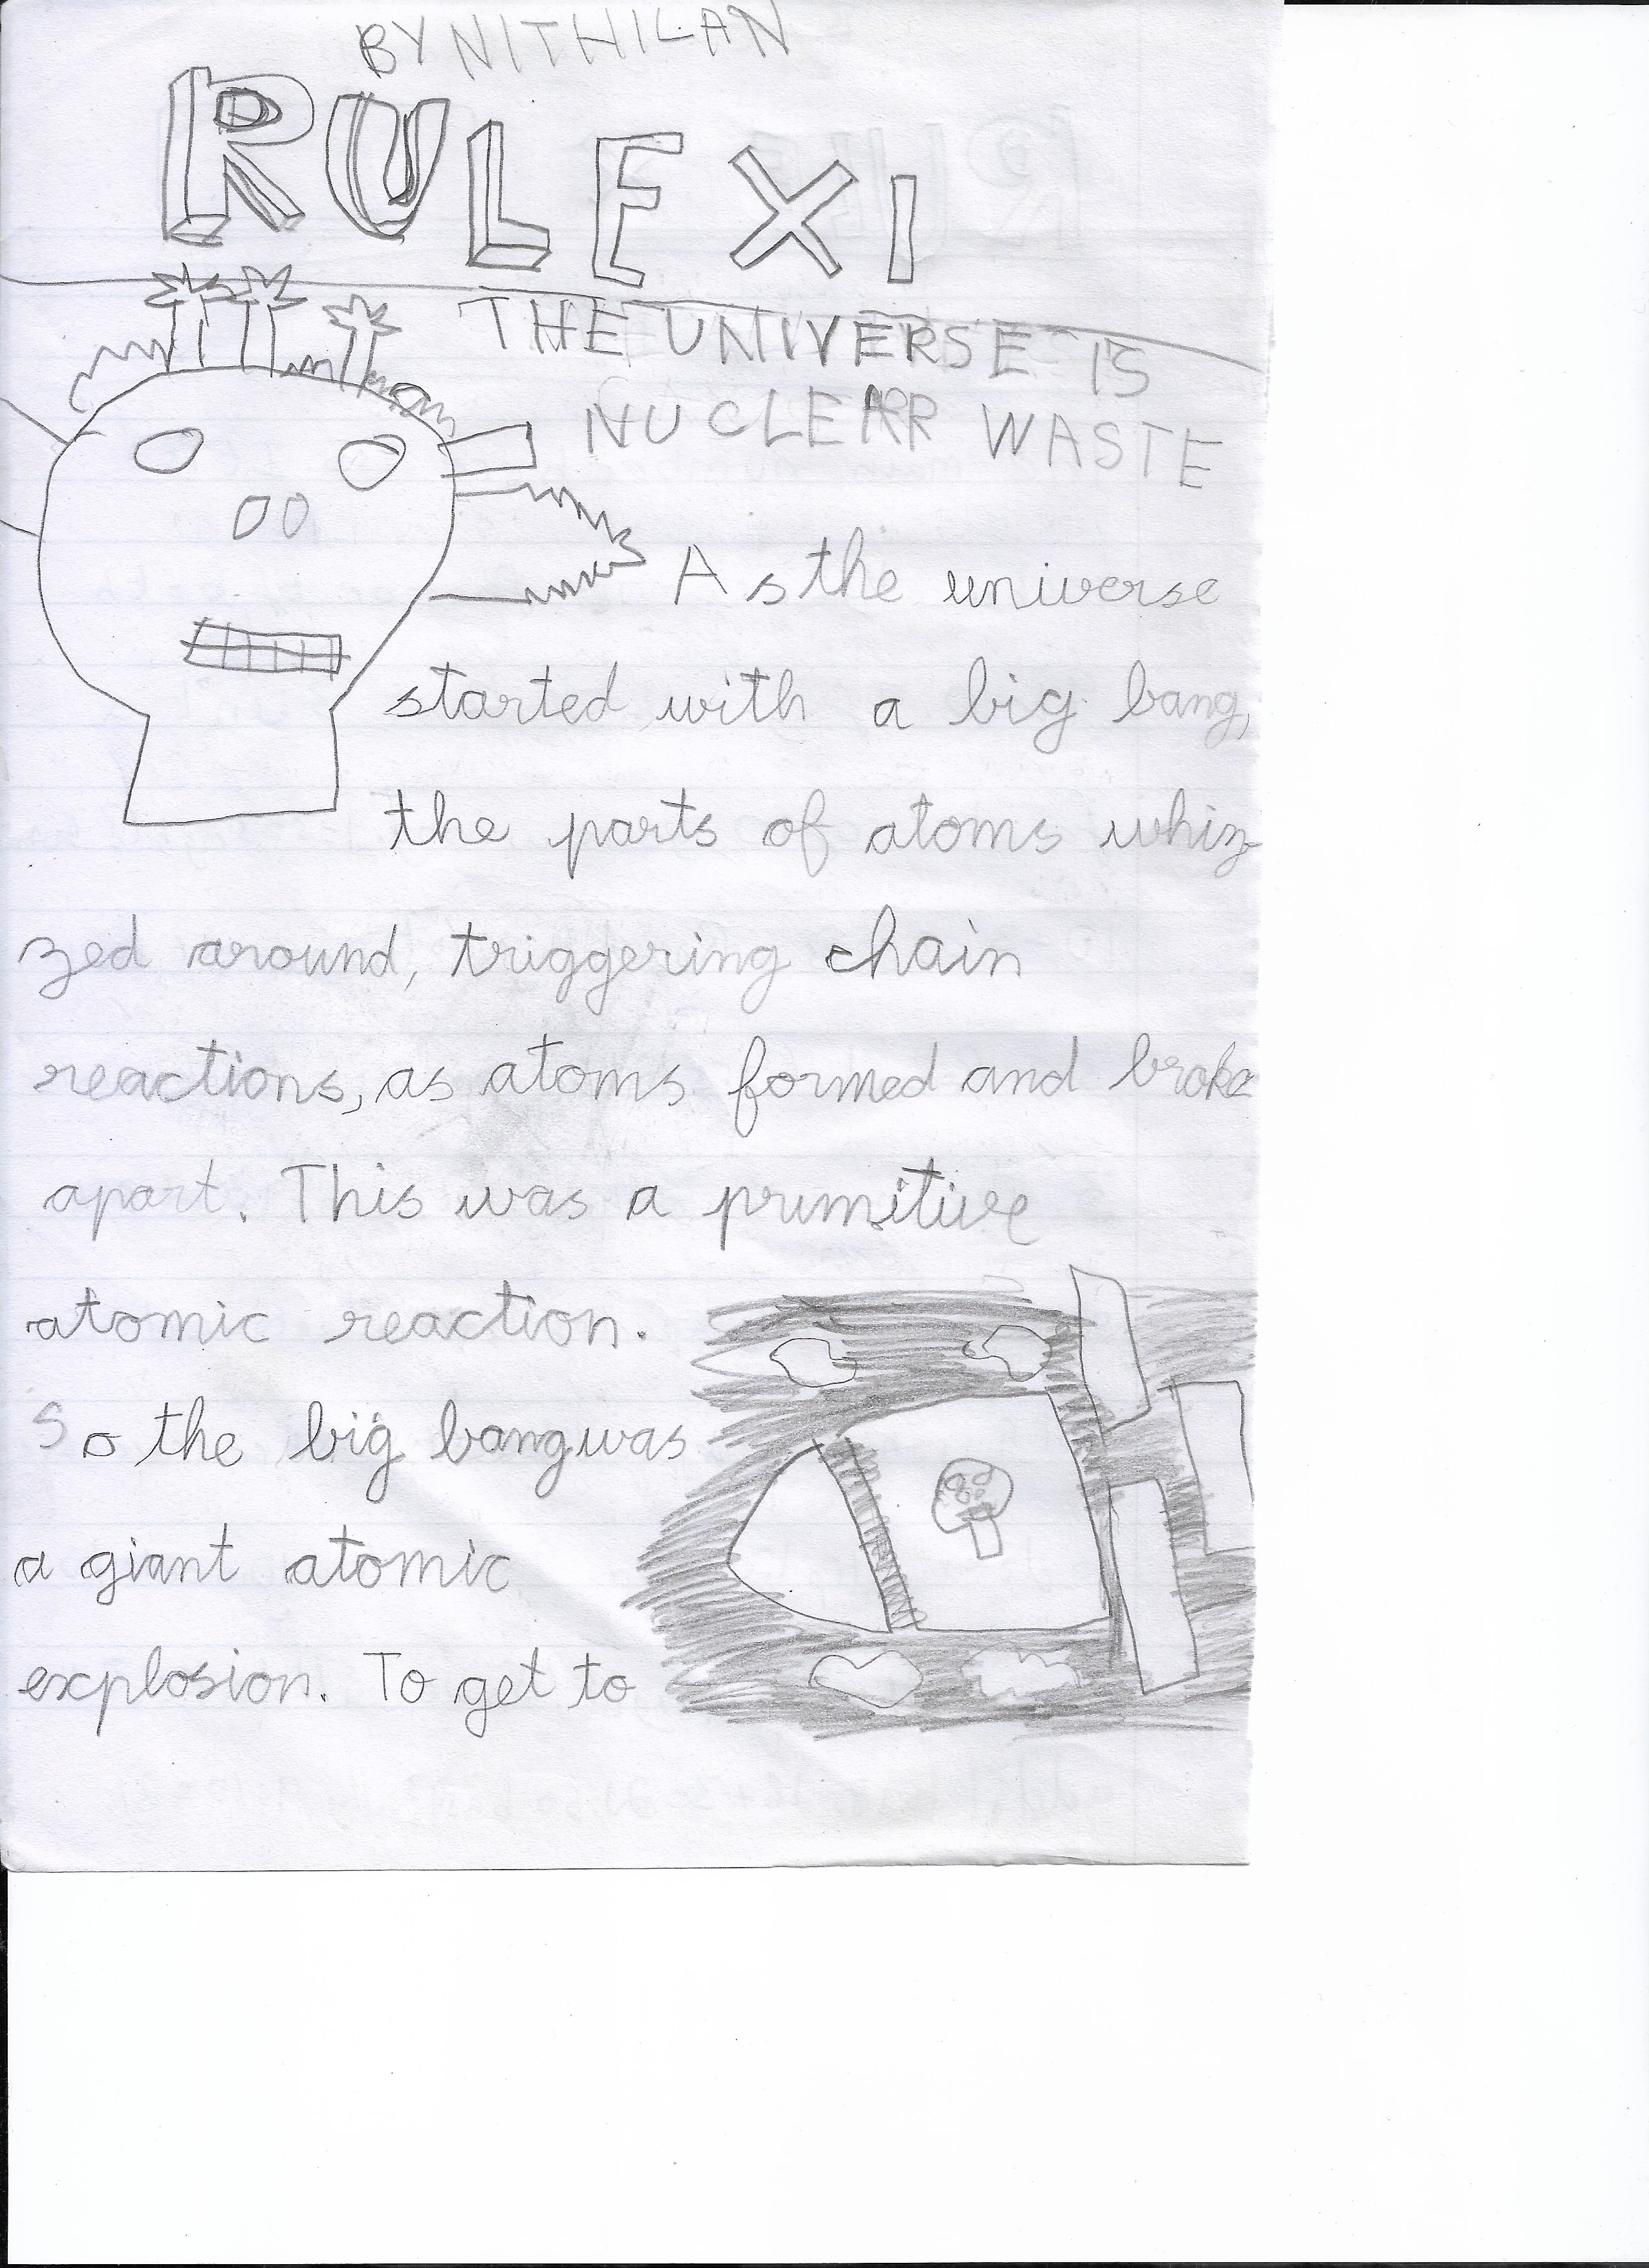 BY NITHILAN
RULE XI
THE UNIVERSE IS
NUCLEAR WASTE
As the universe
started with a big bang,
the parts of atoms whiz-
zed around, triggering chain
reactions, as atoms formed and broke
apart. This was a primitive
atomic reaction.
So the big bang was
a giant atomic
explosion. To get to